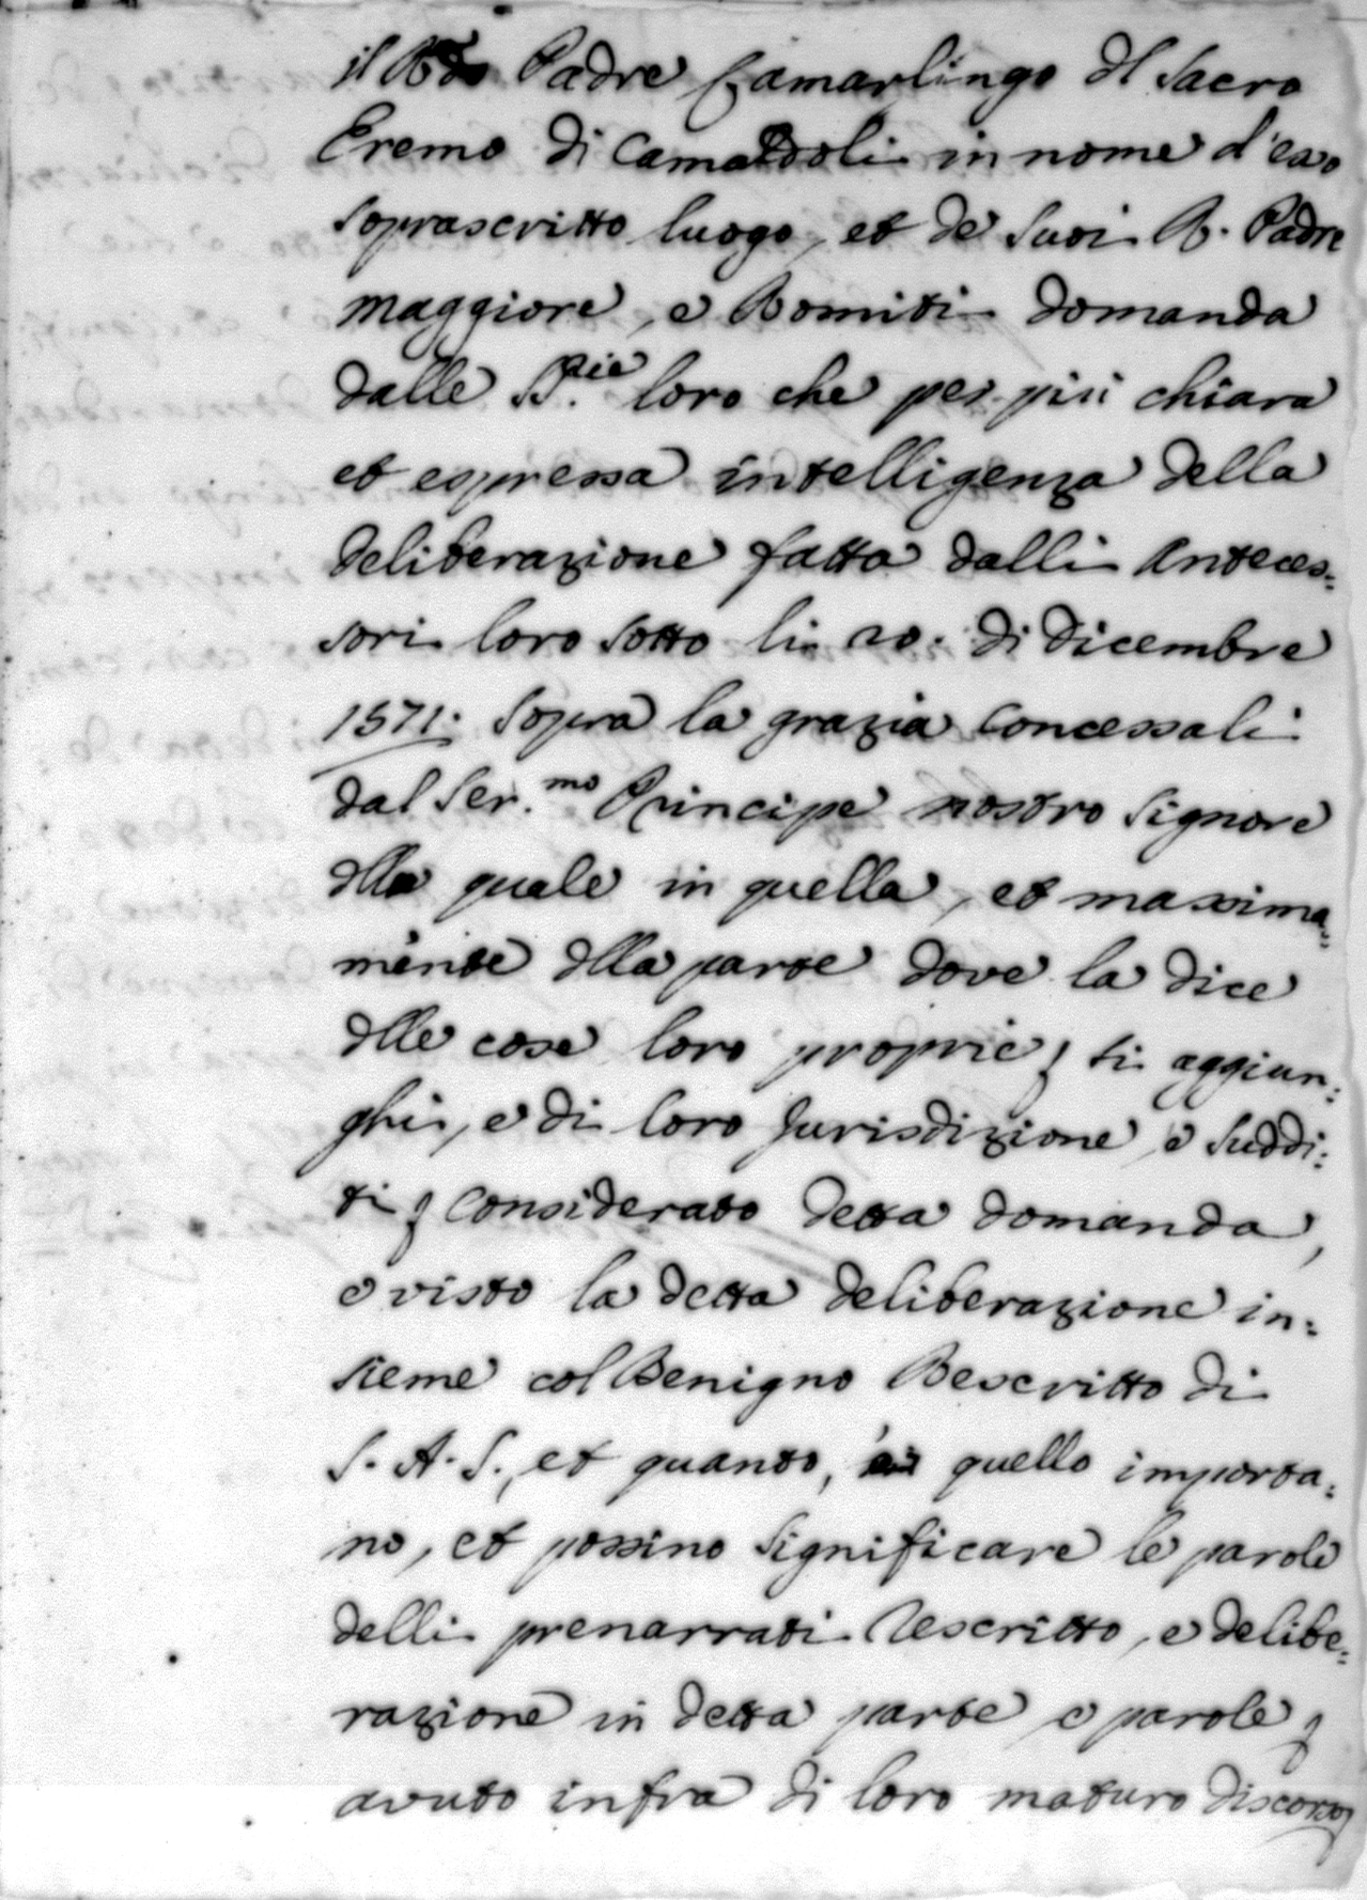 il R.do Padre Camarlingo dl Sacro
Eremo di Camaldoli in nome d'esso
soprascritto luogo, et de' Suoi R. Padre
maggiore, e Romiti domanda
dalle S.rie loro che per più chiara
et espressa intelligenza della
deliberazione fatta dalli Anteces:
sori loro sotto li 20. di dicembre
1571. sopra la grazia concessali
dal Ser.mo Principe nostro Signore
dlla quale in quella, et massima:
mente dlla parte dove la dice
dlle cose loro proprie; si aggiun:
ghi, e di loro Jurisdizione, e suddi:
ti; Considerato detta domanda,
e visto la detta deliberazione in:
sieme col Benigno Rescritto di
S. A. S., et quanto, in quello importa:
no, et possino significare le parole
delli prenarrati Rescritto, e delibe:
razione in detta parte e parole;
avuto infra di loro maturo discorso,